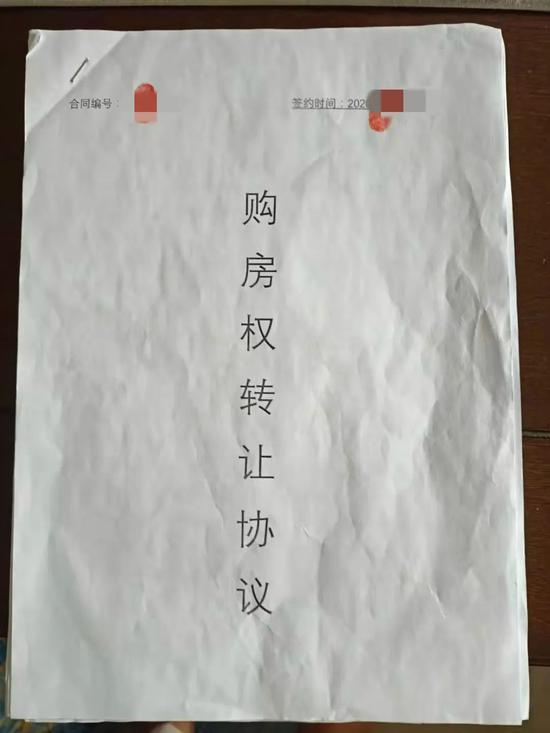 合同编号：
签约时间：2020
购房权转让协议